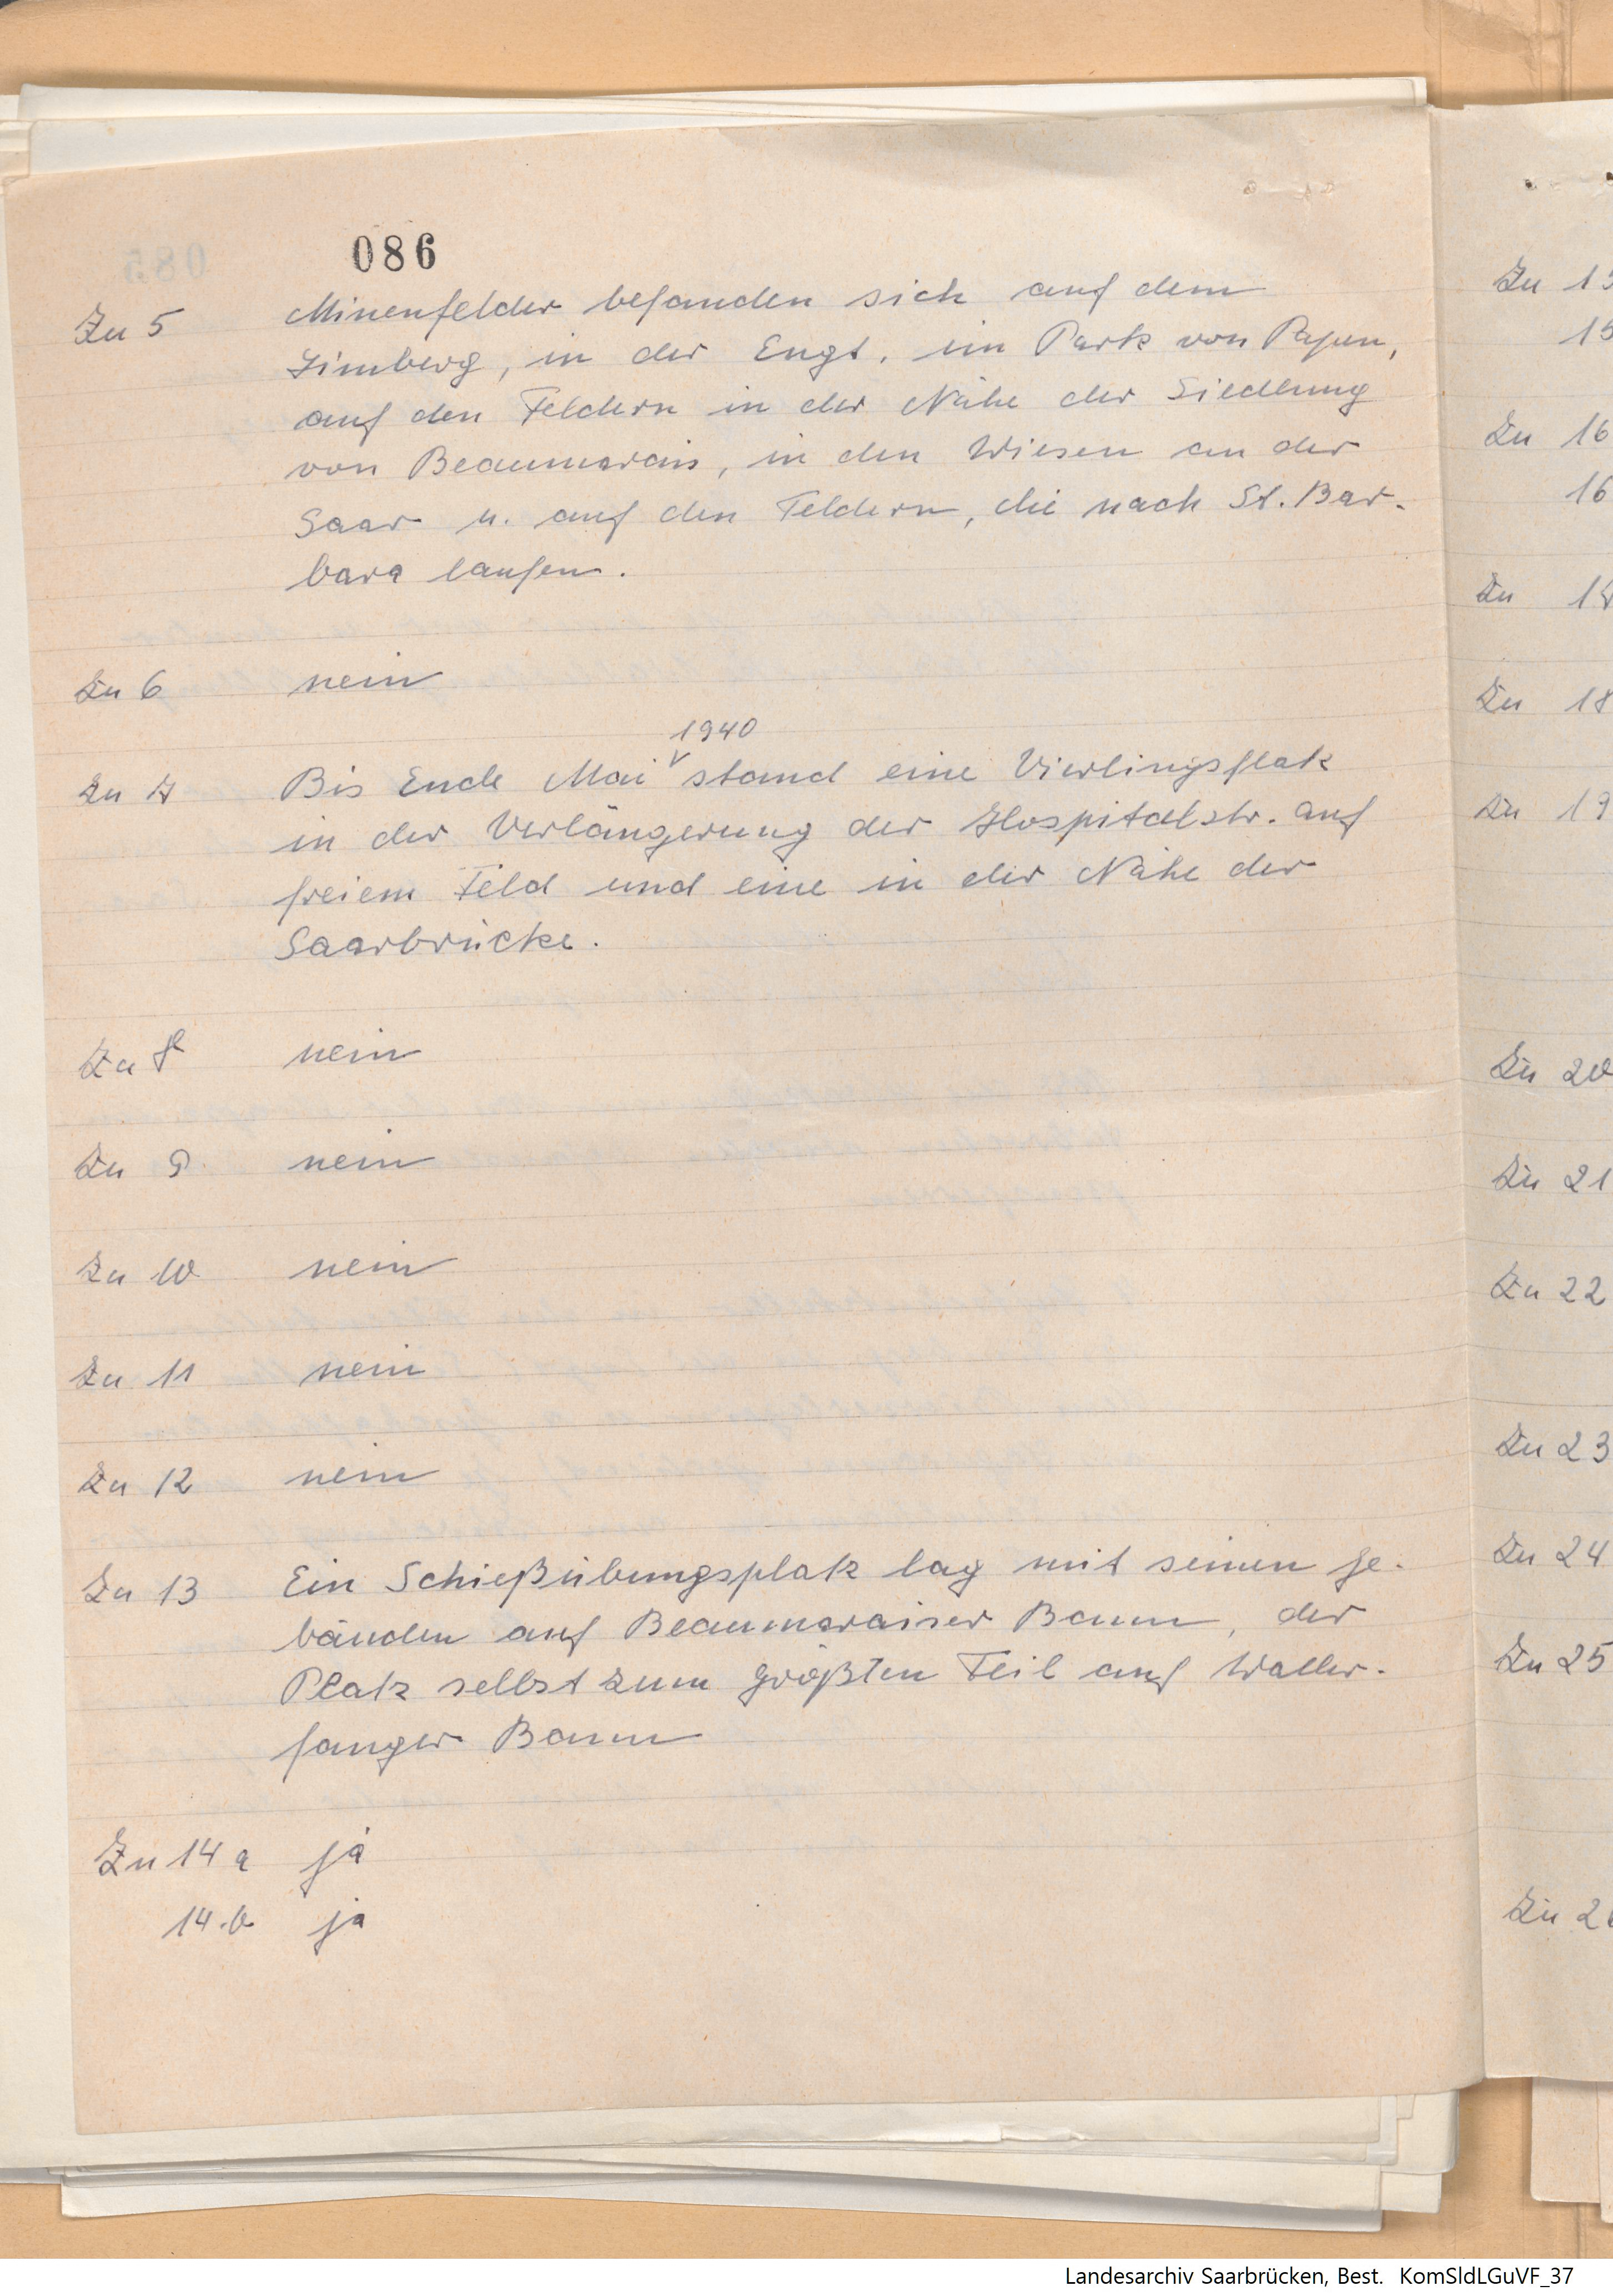 086
Zu 5 Minenfelder befanden sich auf dem
Limberg, in der Engt. im Park von Papen,
auf den Feldern in der Nähe der Siedlung
von Beaumarais, in den Wiesen an der
Saar u. auf den Feldern, die nach St. Bar-
bara laufen.
Zu 6 nein
1940
Zu 7 Bis Ende Mai stand eine Vierlingsflak
in der Verlängerung der Hospitalstr. auf
freiem Feld und eine in der Nähe der
Saarbrücke.
Zu 8 nein
Zu 9 nein
Zu 10 nein
Zu 11 nein
Zu 12 nein
Zu 13 Ein Schießübungsplatz lag mit seinen Ge-
bäuden auf Beaumaraiser Bann, der
Platz selbst zum größten Teil auf Waller-
fanger Bann
Zu 14 a ja
14.b ja
Zu
Zu 16
16
Zu
Zu 18
Zu 19
Zu 20
Zu 21
Zu 22
Zu 23
Zu 24
Zu 25
Zu
Landesarchiv Saarbrücken, Best. KomSldLGuVF_37